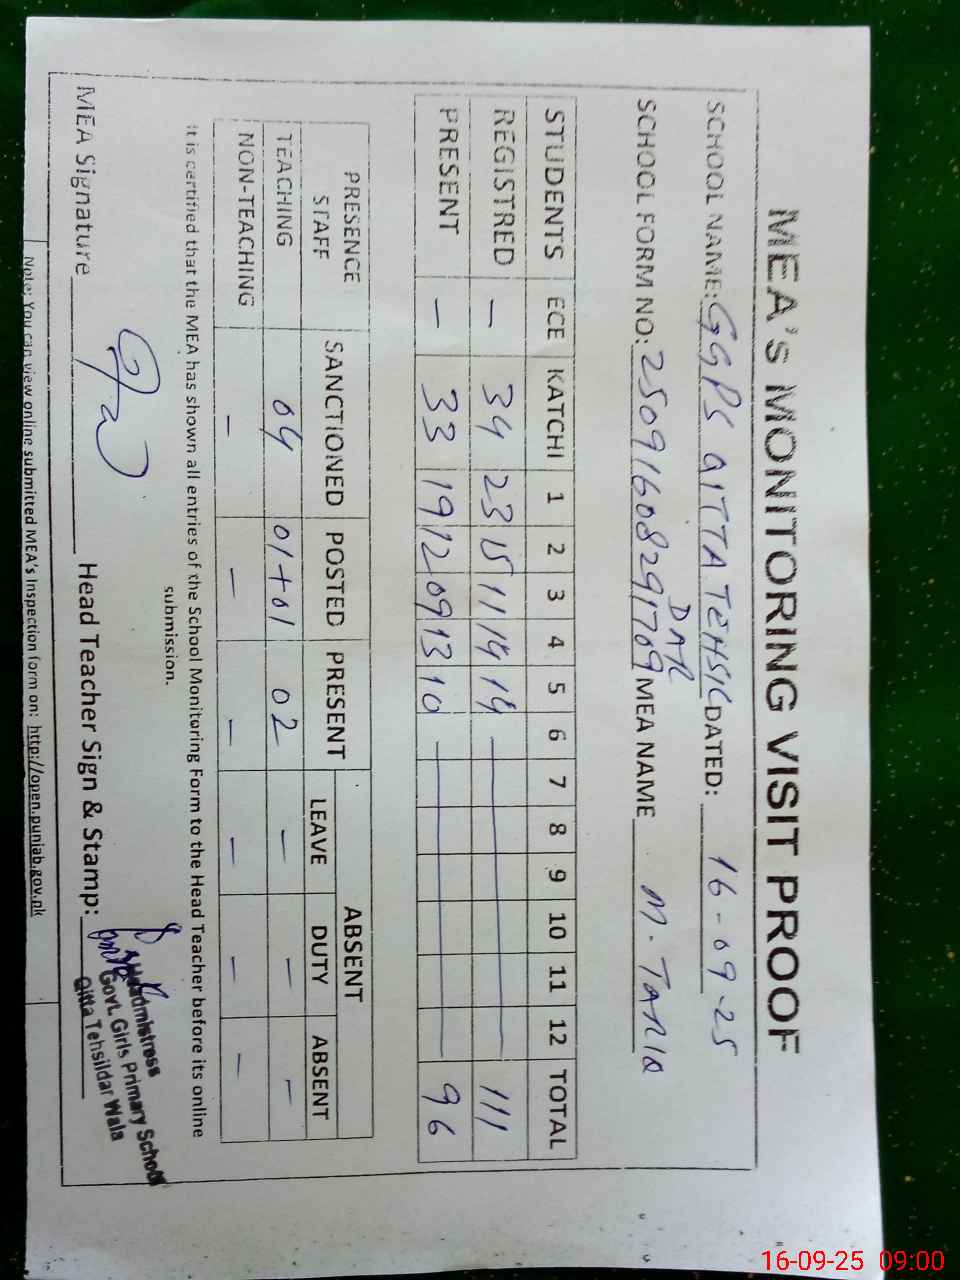 MEA's MONITORING VISIT PROOF
SCHOOL NAME: GGPS QITTA TEHSIL DAR DATED: 16-09-25
SCHOOL FORM NO: 25091608291709 MEA NAME M. TARIQ
STUDENTS ECE KATCHI 1 2 3 4 5 6 7 8 9 10 11 12 TOTAL
REGISTRED — 34 23 15 11 14 14 — 111
PRESENT — 33 19 12 09 13 10 — 96
PRESENCE STAFF SANCTIONED POSTED PRESENT ABSENT
LEAVE DUTY ABSENT
TEACHING 04 01+01 02 — — —
NON-TEACHING — — — — — —
It is certified that the MEA has shown all entries of the School Monitoring Form to the Head Teacher before its online
submission.
MEA Signature Head Teacher Sign & Stamp:
Headmistress
Govt. Girls Primary School
Qitta Tehsildar Wala
Note: You can view online submitted MEA's Inspection form on: http://open.punjab.gov.pk
16-09-25 09:00